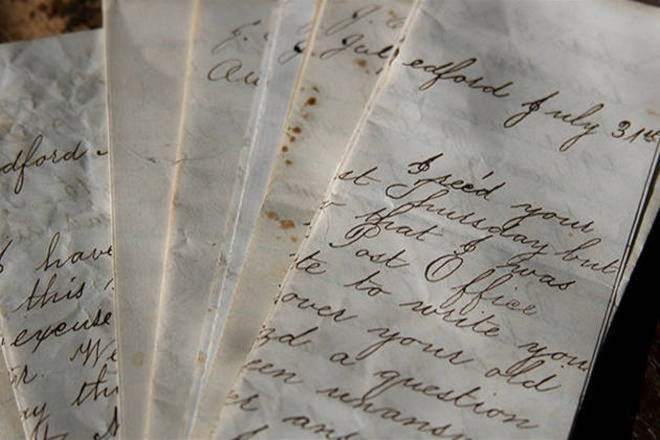 dford
I have
this
excuse
r. We
y thi
Au
J. Jul
edford July 31st
I rec'd your
st Thursday but
that I was
Post Office
te to write you
over your old
nd a question
een unansw
er an